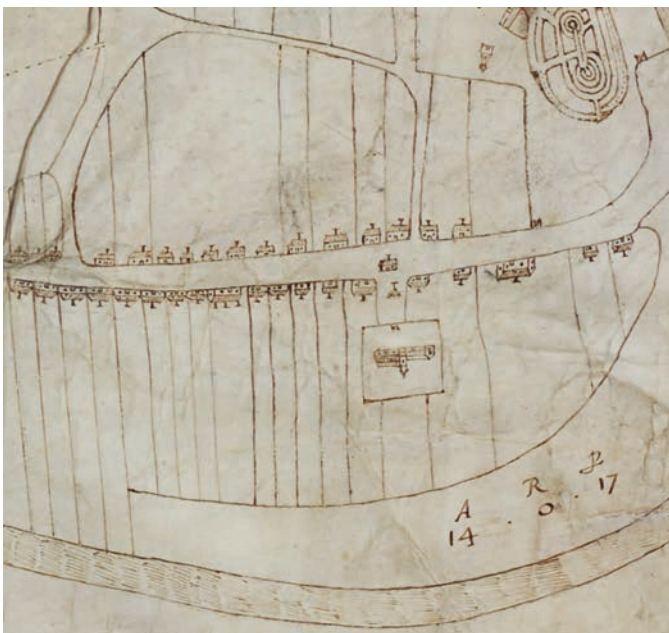 A R P
14 . 0 . 17